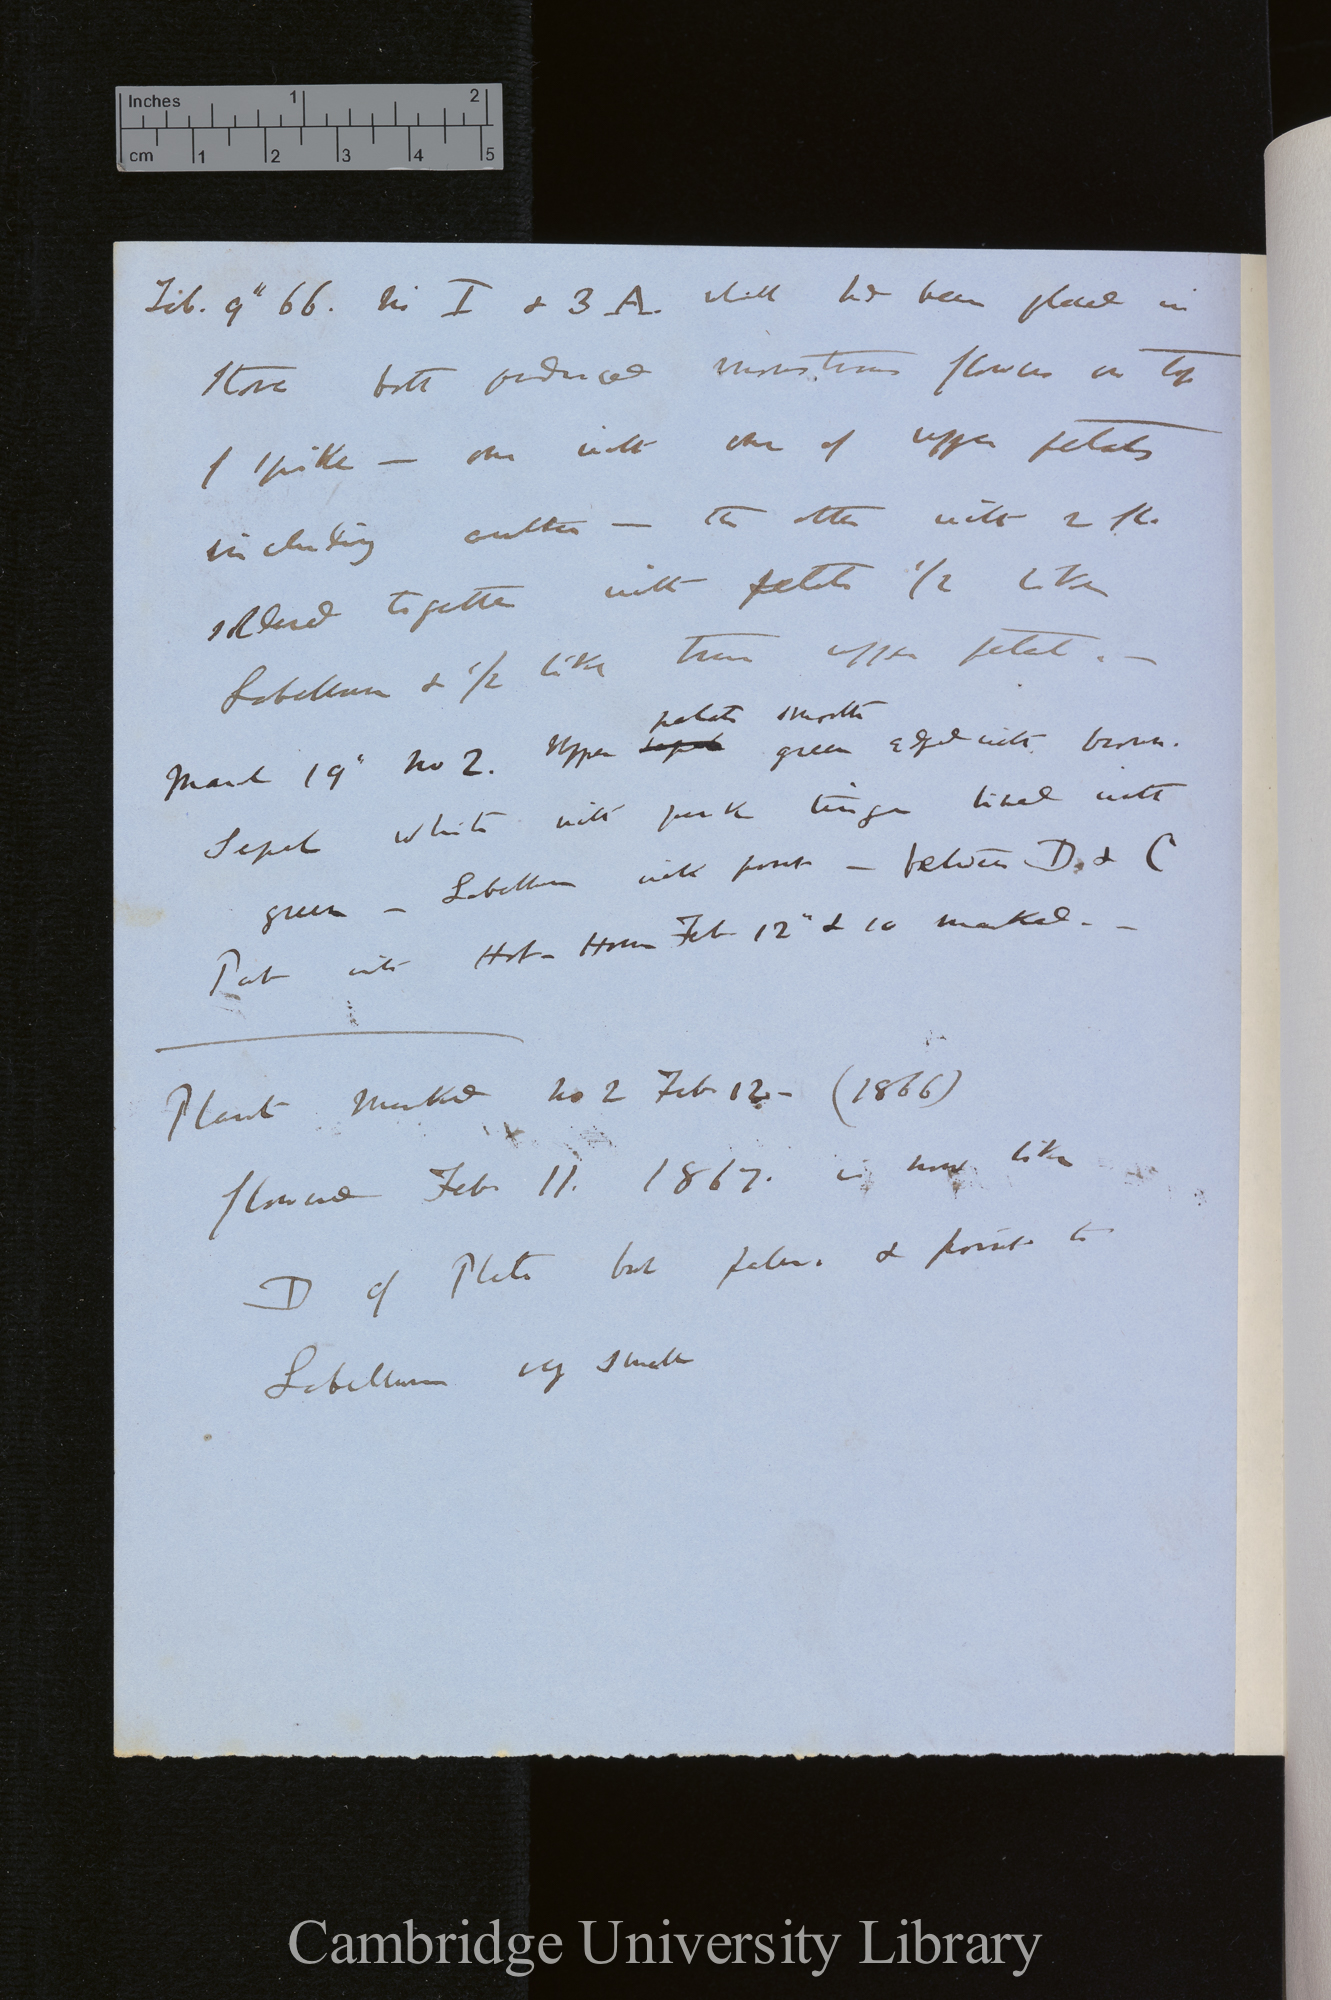 Inches 1 2
cm 1 2 3 4 5
Feb. 9" 66. No I & 3 A. which had been placed in
stove both produced monstrous flowers on top
of spike — one with one of upper petals
including anther — the other with 2 fl.
soldered together with petals 1/2 like
Labellum & 1/2 like true upper petal. —
petals smooth
March 19" No 2. Upper sepals green edged with brown.
Sepals white with pink tinge lined with
green — Labellum with point — between D. & C
Put into Hot-House Feb 12" & so marked. —
Plant marked No 2 Feb 12 — (1866)
flowered Feb 11. 1867. is now like
D of Plate but paler & point to
Labellum very small
Cambridge University Library